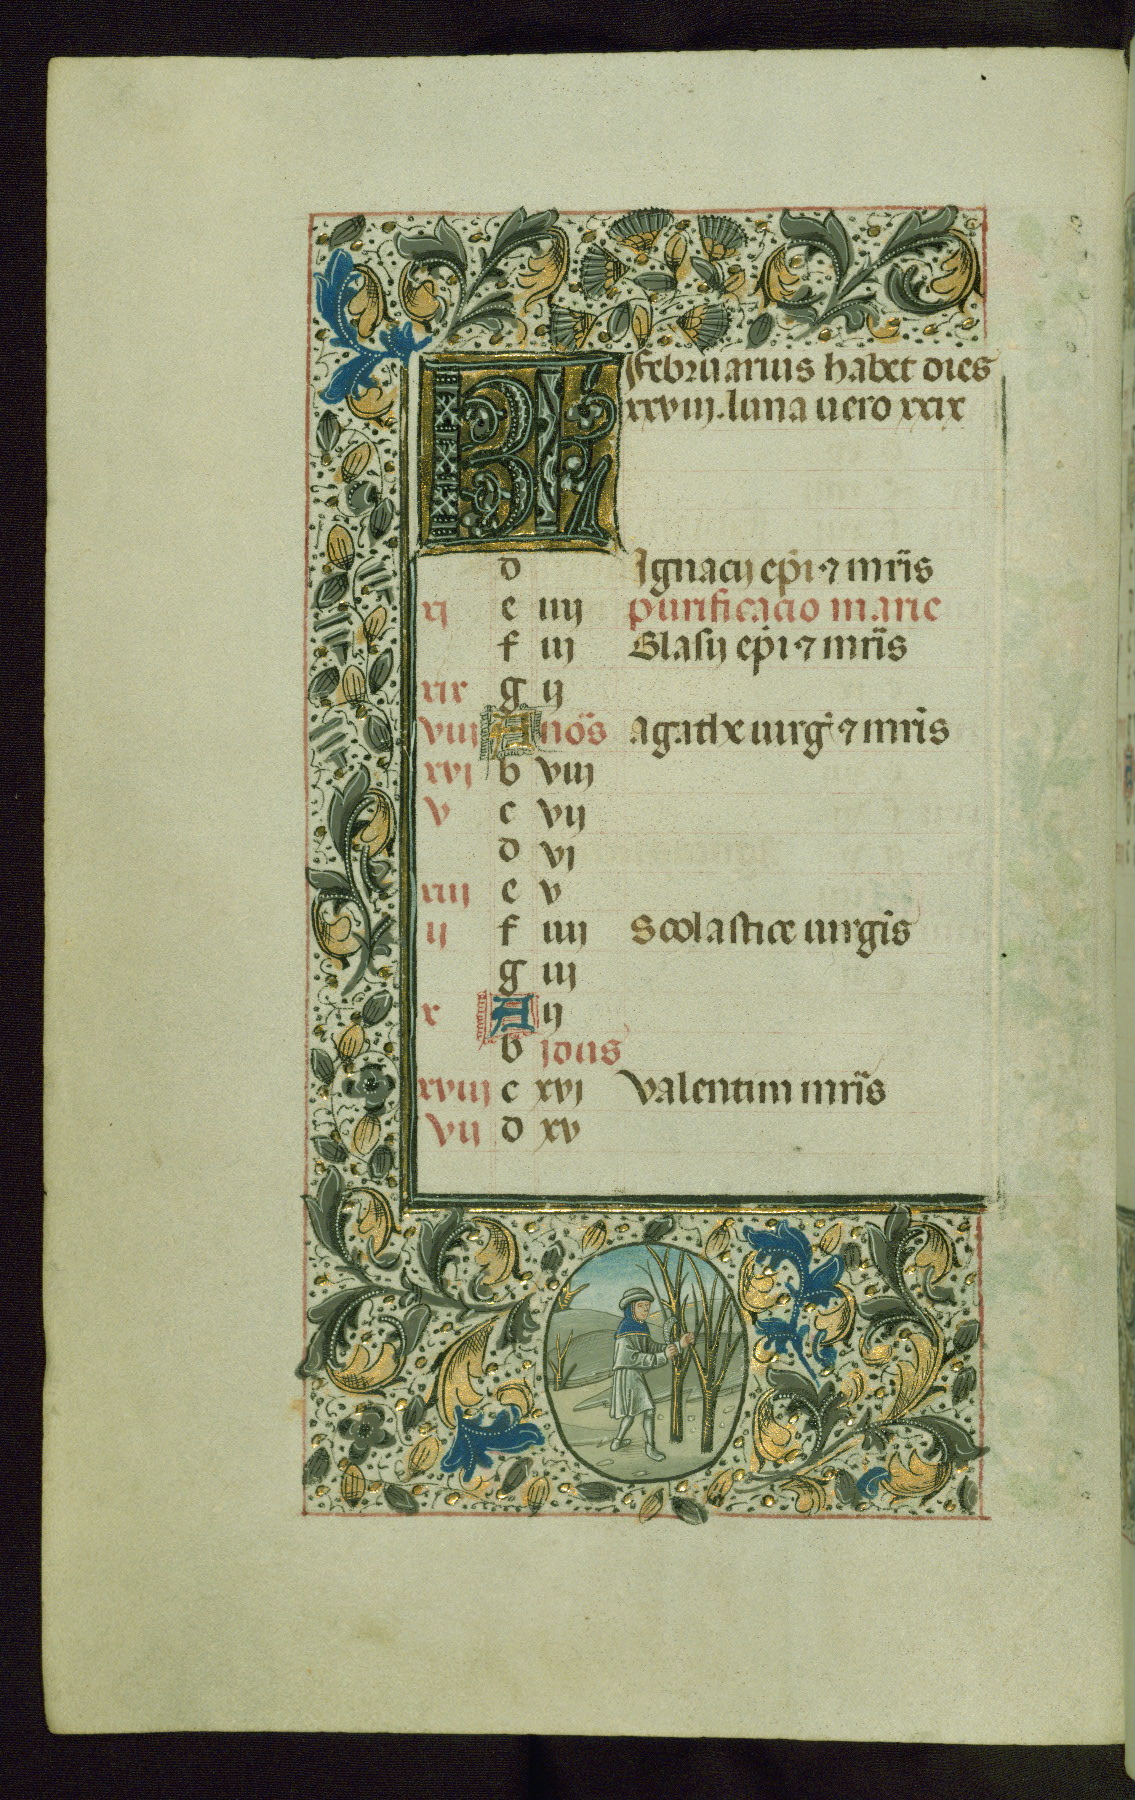 KL Februarius habet dies
xxviij. luna vero xxix
d Ignacij epi ⁊ mris
xj e iiij purificacio marie
f iij Blasij epi ⁊ mris
xix g ij
viij A nos agathe uirg ⁊ mris
xvj b viij
v c vij
d vj
xiij e v
ij f iiij Scolastice uirgis
g iij
x A ij
b jdus
xviij c xvj Valentini mris
vij d xv